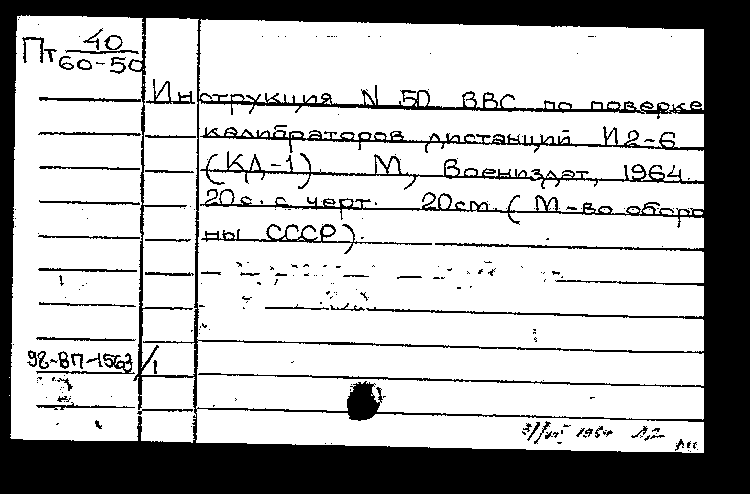 Пт 40
60-50
Инструкция N 50 ВВС по поверке
калибраторов дистанций И2-6
(КД-1) М, Воениздат, 1964.
20с. с черт. 20см. (М-во оборо
ны СССР).
98-ВП-1563/1
1964